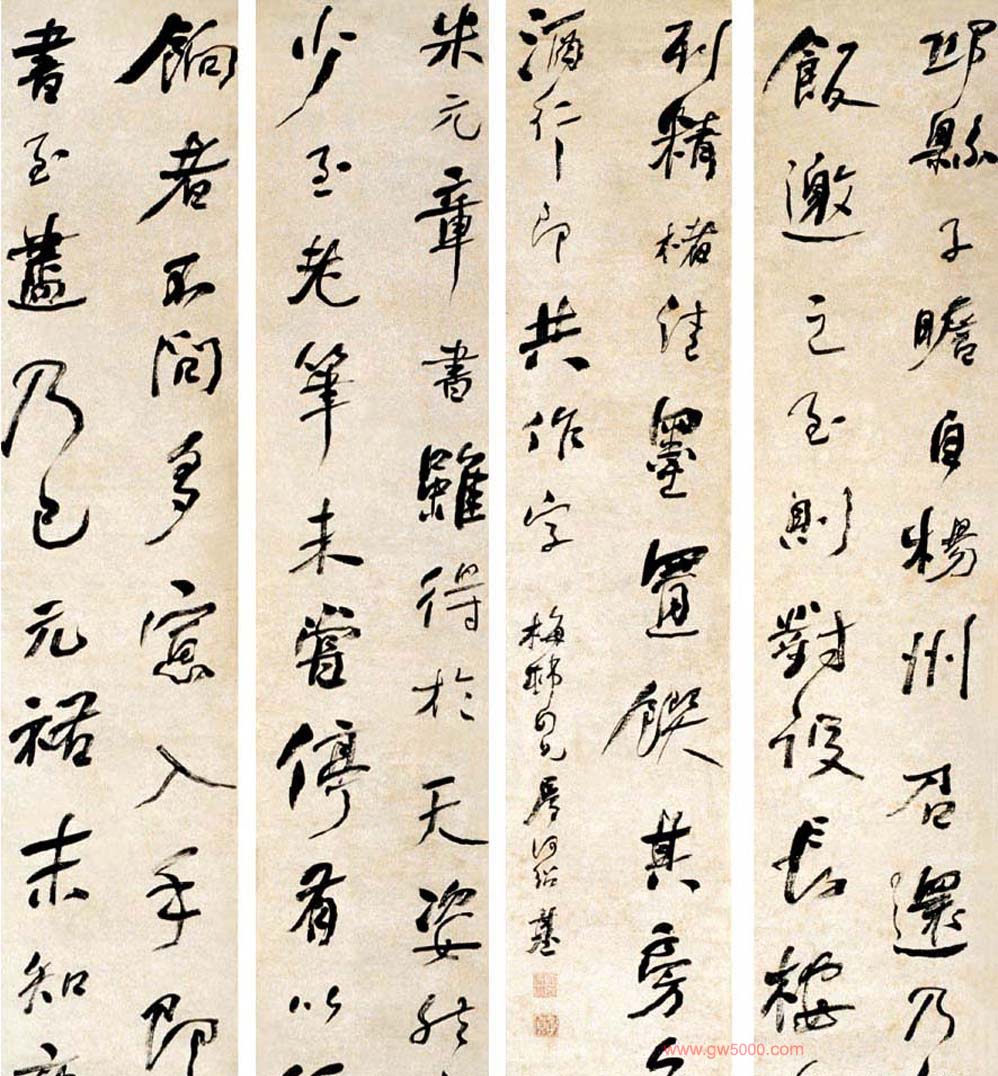 米元章書雖得於天姿然
少至老筆未嘗停有以
餉者不問多寡入手即
書至盡乃已元祐末知
邱縣子瞻自楊州召還乃
飯邀之至則對設長桉
列精楮佳墨置饌其旁
酒行即共作字
梅 四兄屬何紹基
www.gw5000.com